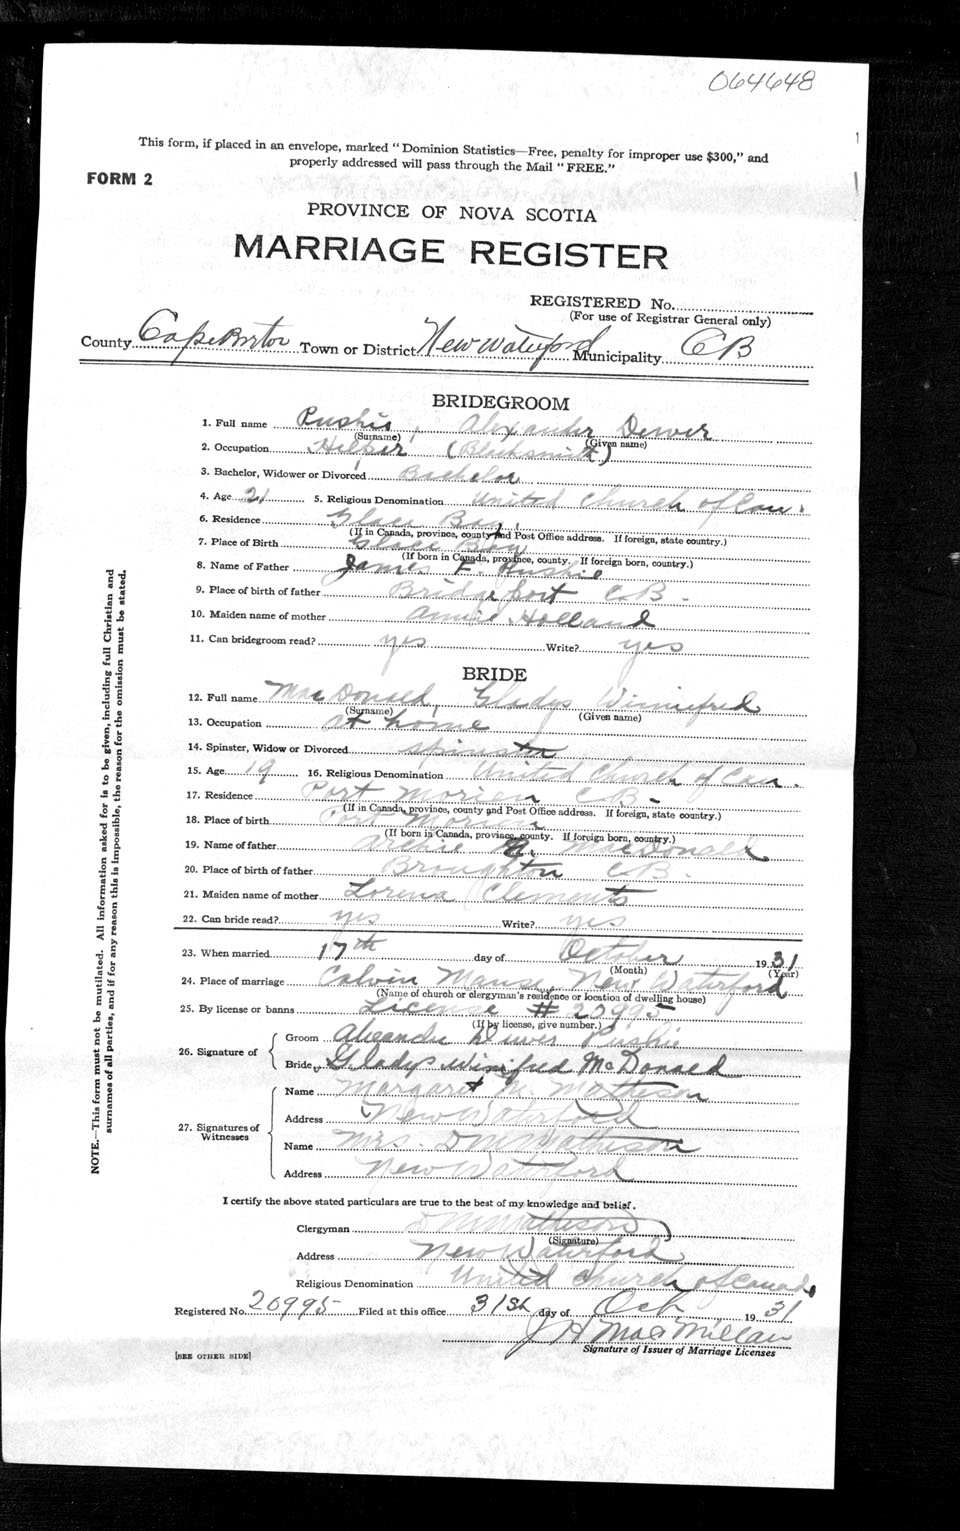 064648
This form, if placed in an envelope, marked "Dominion Statistics—Free, penalty for improper use $300," and
properly addressed will pass through the Mail "FREE."
FORM 2
PROVINCE OF NOVA SCOTIA
MARRIAGE REGISTER
REGISTERED No.
(For use of Registrar General only)
County Cape Breton Town or District New Waterford Municipality CB
BRIDEGROOM
1. Full name Rushie, Alexander Dewer
(Surname) (Given name)
2. Occupation Helper (Blacksmith)
3. Bachelor, Widower or Divorced Bachelor
4. Age 21 5. Religious Denomination United Church of Can.
6. Residence Glace Bay,
(If in Canada, province, county and Post Office address. If foreign, state country.)
7. Place of Birth Glace Bay
(If born in Canada, province, county. If foreign born, country.)
8. Name of Father James F. Rushie
9. Place of birth of father Bridgeport C.B.
10. Maiden name of mother Annie Holland
11. Can bridegroom read? yes Write? yes
BRIDE
12. Full name MacDonald, Gladys Winnifred
(Surname) (Given name)
13. Occupation at home
14. Spinster, Widow or Divorced spinster
15. Age 19 16. Religious Denomination United Church of Can.
17. Residence Port Morien C.B.
(If in Canada, province, county and Post Office address. If foreign, state country.)
18. Place of birth Port Morien
(If born in Canada, province, county. If foreign born, country.)
19. Name of father Archie MacDonald
20. Place of birth of father Broughton C.B.
21. Maiden name of mother Lorena Clements
22. Can bride read? yes Write? yes
23. When married 17th day of October 1931
(Month) (Year)
24. Place of marriage Calvin Manse, New Waterford
(Name of church or clergyman's residence or location of dwelling house)
25. By license or banns License #
(If by license, give number.)
26. Signature of
Groom Alexander Dewer Rushie
Bride Gladys Winifred McDonald
27. Signatures of
Witnesses
Name Margaret M. Mattison
Address New Waterford
Name Mrs. D M Mathison
Address New Waterford
I certify the above stated particulars are true to the best of my knowledge and belief.
Clergyman D M Mathison
(Signature)
Address New Waterford
Religious Denomination United Church of Canada
Registered No. 20995 Filed at this office 31st day of Oct. 1931
J H MacMillan
Signature of Issuer of Marriage Licenses
[SEE OTHER SIDE]
NOTE.—This form must not be mutilated. All information asked for is to be given, including full Christian and
surnames of all parties, and if for any reason this is impossible, the reason for the omission must be stated.